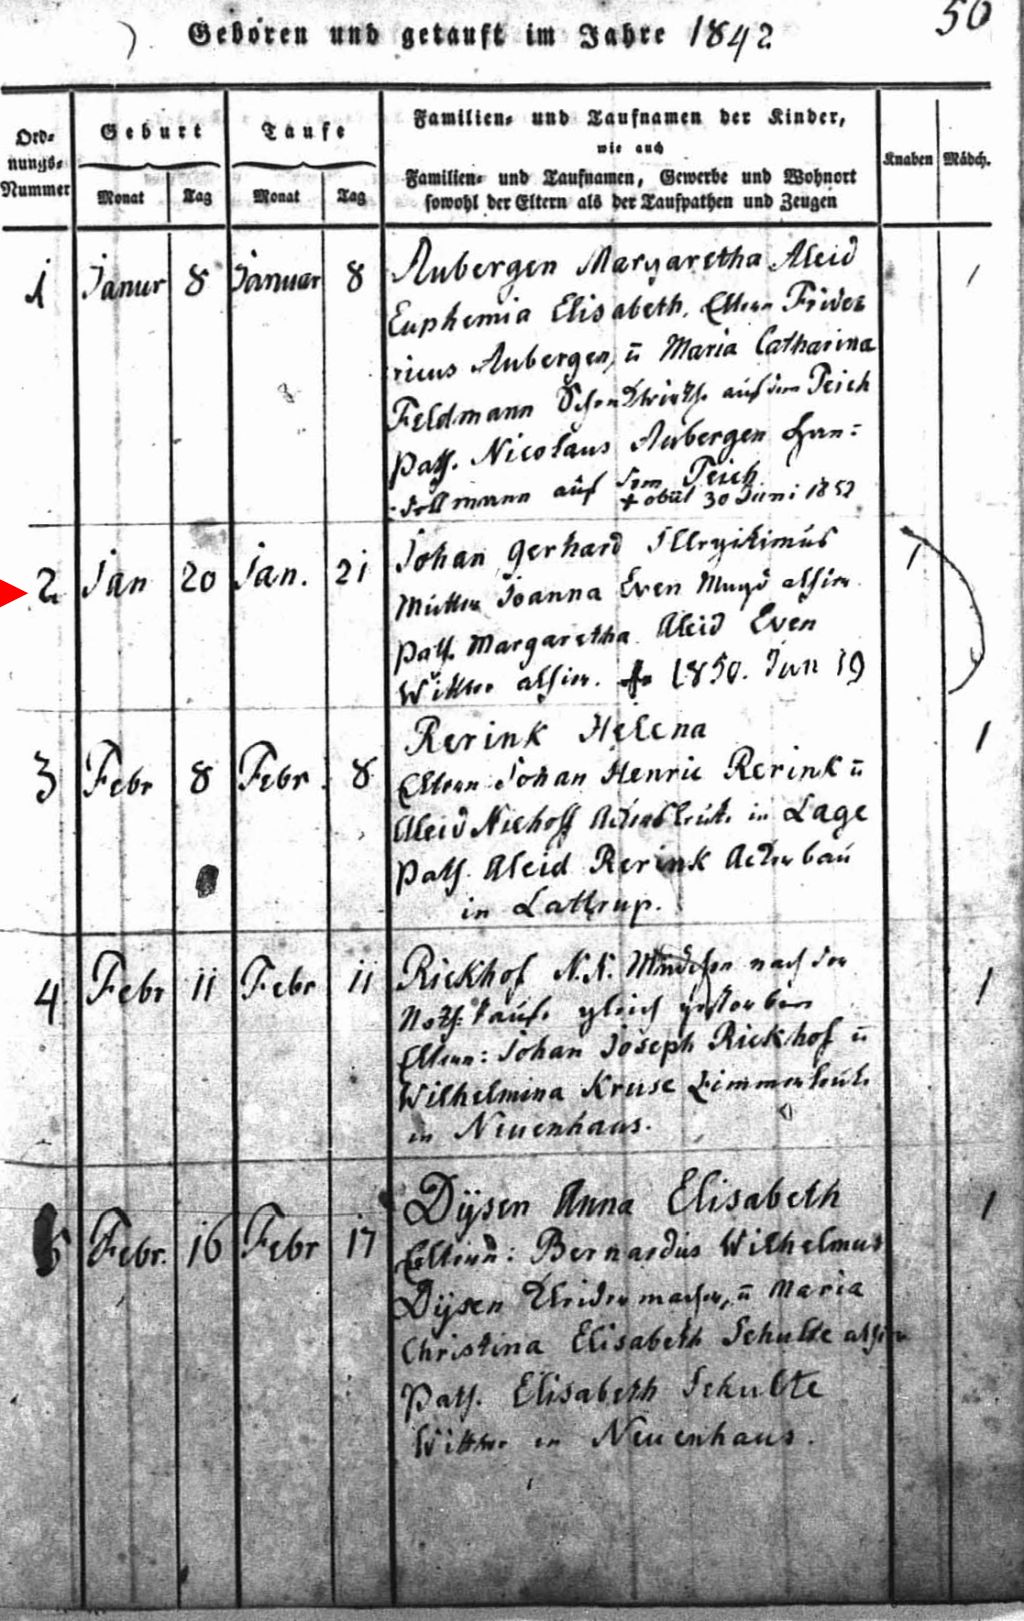 Geboren und getauft im Jahre 1842
50
Ord-
nungs-
Nummer
Geburt
Taufe
Monat
Tag
Monat
Tag
Familien- und Taufnamen der Kinder,
wie auch
Familien- und Taufnamen, Gewerbe und Wohnort
sowohl der Eltern als der Taufpathen und Zeugen
Knaben
Mädch.
1 Janur 8 Januar 8 Aubergen Margaretha Aleid 1
Euphemia Elisabeth. Eltern Fride-
ricus Aubergen, ū Maria Catharina
Feldmann auf dem Teich
Path. Nicolaus Aubergen
auf dem Teich
+ obiit 30 Juni 1852
2 Jan 20 Jan. 21 Johan Gerhard Illegitimus 1
Mutter Joanna Even Magd alhier
Path. Margaretha Aleid Even
Wittwe alhier. 1850. Jun 19
3 Febr 8 Febr. 8 Rerink Helena 1
Eltern Johan Henric Rerink ū
Aleid Niehoff Ackersleute in Lage
Path. Aleid Rerink Ackerbau
in Lattrup.
4 Febr 11 Febr 11 Rickhof N.N. Mädchen nach der 1
Noth-taufe gleich gestorben
Eltern: Johan Joseph Rickhof ū
Wilhelmina Kruse Zimmerleute
in Neuenhaus.
5 Febr. 16 Febr 17 Dijsen Anna Elisabeth 1
Eltern: Bernardus Wilhelmus
Dijsen Kleidermacher, ū Maria
Christina Elisabeth Schulte alhier
Path. Elisabeth Schulte
Wittwe in Neuenhaus.